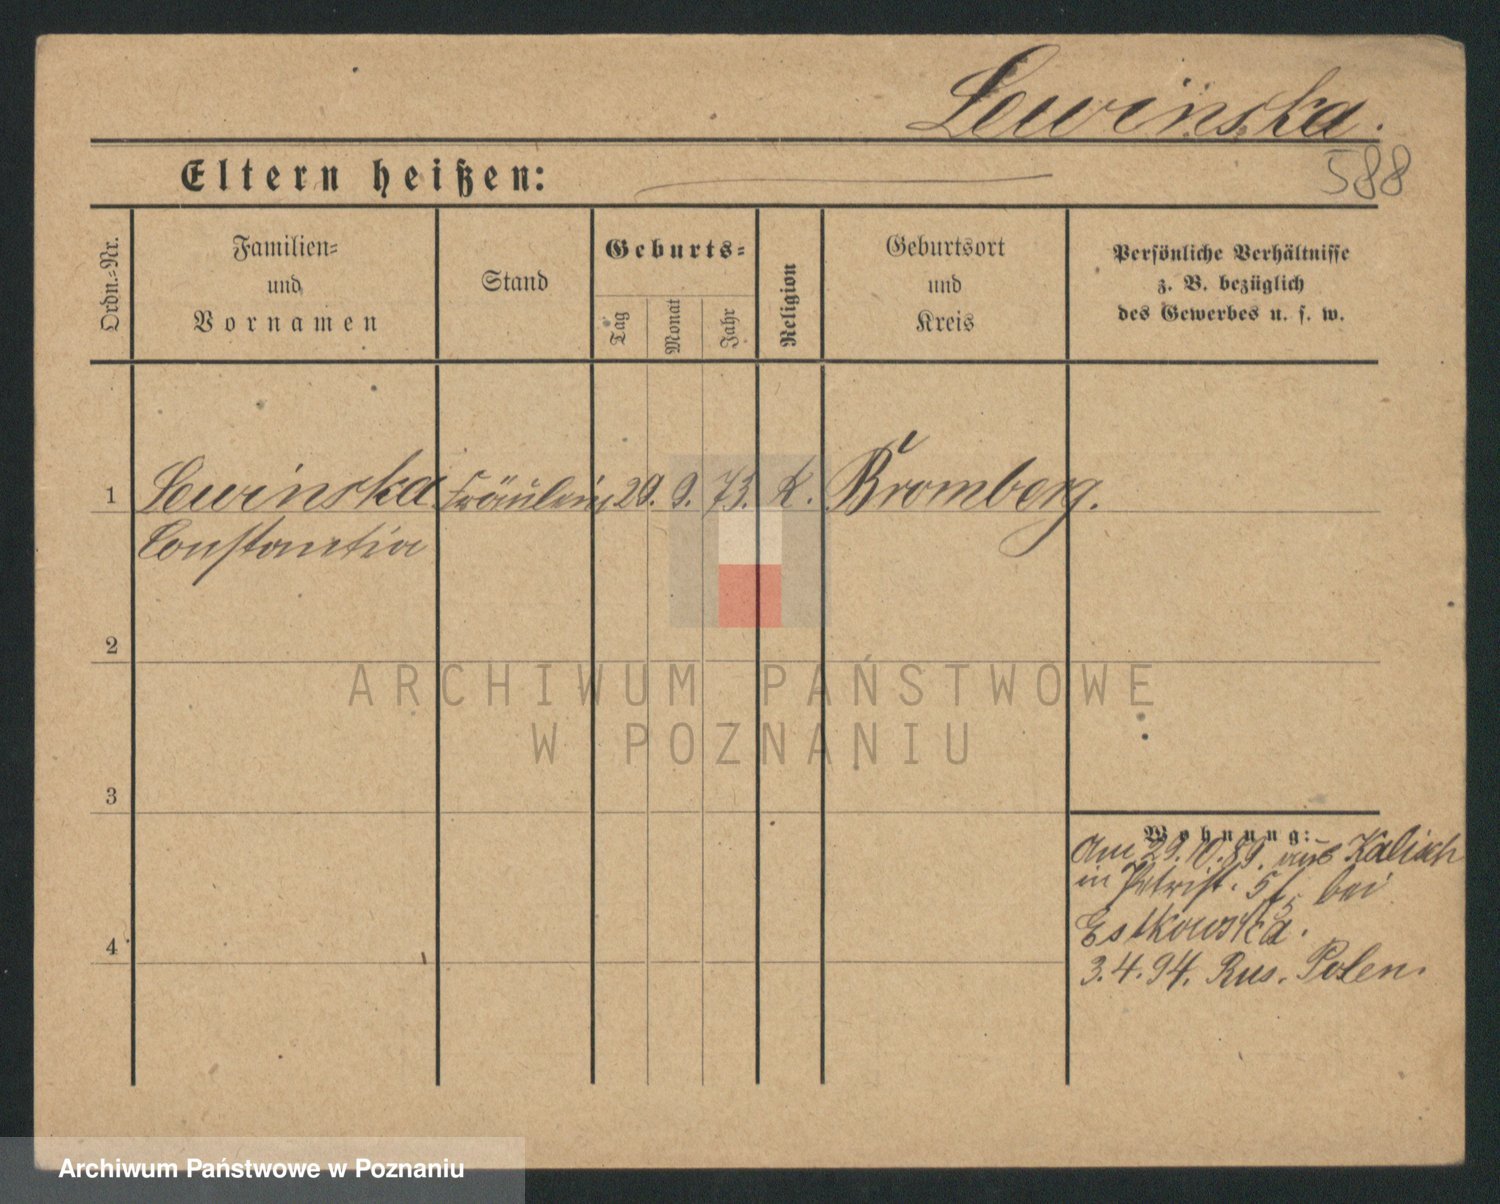 Lewinska.
Eltern heißen:
588
Ordn.=Nr.
Familien=
und
Vornamen
Stand
Geburts=
Tag
Monat
Jahr
Religion
Geburtsort
und
Kreis
Persönliche Verhältnisse
z. B. bezüglich
des Gewerbes u. s. w.
1 Lewinska Fräulein 29. 9. 73. K. Bromberg.
Constantia
2
3
4
Wohnung:
Am 29.10.89. aus Kalisch
in Petrist. 5 bei
Estkowska.
3.4.94. Rus. Polen.
ARCHIWUM PAŃSTWOWE
W POZNANIU
Archiwum Państwowe w Poznaniu